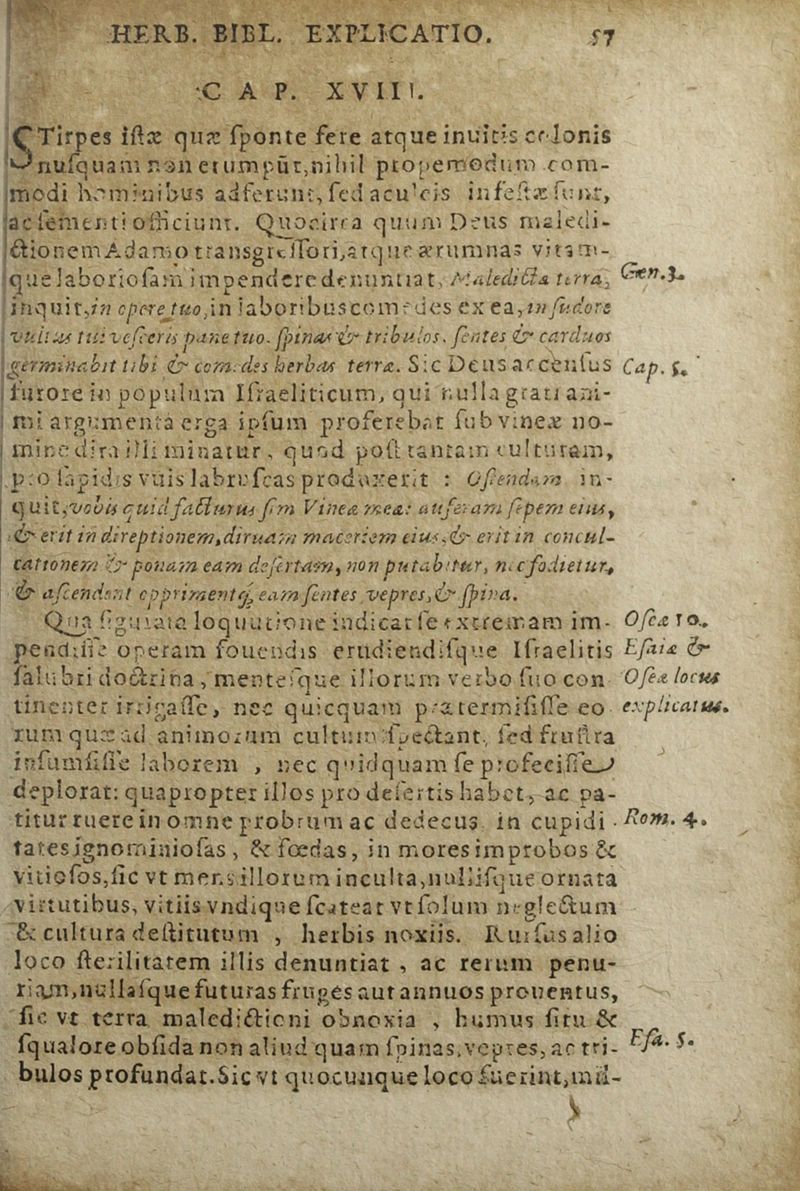 HERB. BIBL. EXPLICATIO. 57
CAP. XVIII.
STirpes iſtæ quæ ſponte fere atque inuitis colonis
nuſquam non erumpūt, nihil propemodum com-
modi hominibus adferunt, ſed aculeis infeſtæ ſunt,
ac ſementi officiunt. Quocirca quum Deus maledi-
ctionem Adamo tranſgreſſori, atque ærumnas vitam-
que laborioſam impendere denuntiat, Maledicta terra, Gen. 3.
inquit, in opere tuo, in laboribus comedes ex ea, in ſudore
vultus tui veſceris pane tuo. ſpinas & tribulos. ſentes & carduos
germinabit tibi & comedes herbas terræ. Sic Deus accenſus Cap. 5.
furore in populum Iſraeliticum, qui nulla grati ani-
mi argumenta erga ipſum proferebat ſub vineæ no-
mine dira illi minatur, quod poſt tantam culturam,
pro lapidis vuis labruſcas produxerit : Oſtendam in-
quit, vobis quid facturus ſim Vineæ meæ: auferam ſepem eius,
& erit in direptionem, diruam maceriem eius, & erit in concul-
cationem & ponam eam deſertam, non putabitur, nec fodietur,
& aſcendent opprimentq; eam ſentes vepres, & ſpina.
Qua figurata loquutione indicat ſe extremam im- Oſeæ 10.
pendiſſe operam fouendis erudiendiſque Iſraelitis Eſaiæ &
ſalubri doctrina, menteſque illorum verbo ſuo con Oſeæ locus
tinenter irrigaſſe, nec quicquam prætermiſiſſe eo explicatus.
rum quæ ad animorum cultum ſpectant, ſed fruſtra
inſumſiſſe laborem , nec quidquam ſe profeciſſe
deplorat: quapropter illos pro deſertis habet, ac pa-
titur ruere in omne probrum ac dedecus in cupidi Rom. 4.
tates ignominioſas, & fœdas, in mores improbos &
vitioſos, ſic vt mens illorum inculta, nulliſque ornata
virtutibus, vitiis vndique ſcateat vt ſolum neglectum
& cultura deſtitutum , herbis noxiis. Rurſus alio
loco ſterilitatem illis denuntiat, ac rerum penu-
riam, nullaſque futuras fruges aut annuos prouentus,
ſic vt terra maledictioni obnoxia , humus ſitu &
ſqualore obſida non aliud quam ſpinas, vepres, ac tri- Eſa. 5.
bulos profundat. Sic vt quocunque loco fuerint, mil-